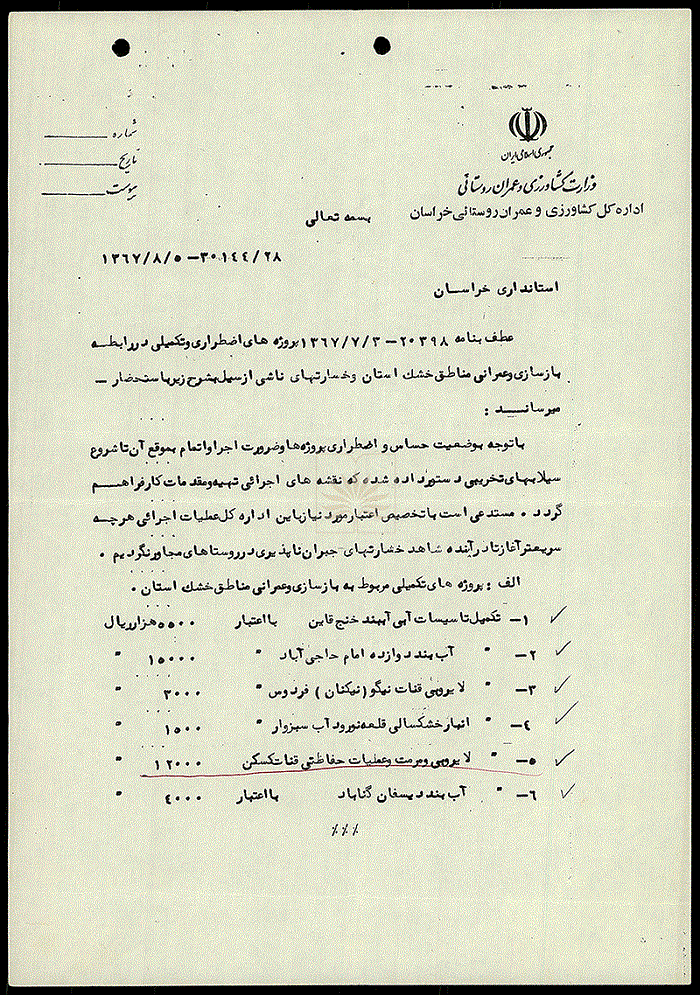 جمهوری اسلامی ایران
وزارت کشاورزی و عمران روستائی
اداره کل کشاورزی و عمران روستائی خراسان
شماره
تاریخ
پیوست
بسمه تعالی
۱۳۶۷/۸/۵ -۳۰۱۴۴/۲۸
استانداری خراسان
عطف بنامه ۲۰۳۹۸ – ۱۳۶۷/۷/۳ پروژه های اضطراری و تکمیلی در رابطه
بازسازی وعمرانی مناطق خشك استان وخسارتهای ناشی از سیل بشرح زیر باستحضار –
میرساند :
با توجه بوضعیت حساس و اضطراری پروژه ها وضرورت اجرا واتمام بموقع آن تا شروع
سیلابهای تخریبی دستور داده شده که نقشه های اجرائی تهیه ومقدمات کار فراهم
گردد . مستدعی است با تخصیص اعتبار مورد نیاز باین اداره کل عملیات اجرائی هرچه
سریعتر آغاز تا در آینده شاهد خسارتهای جبران ناپذیری در روستاهای مجاور نگردیم .
الف : پروژه های تکمیلی مربوط به بازسازی وعمرانی مناطق خشك استان .
۱– تکمیل تاسیسات آبی آببند خنج قاین با اعتبار ۵۵۰۰ هزار ریال
۲– " آب بند دوازده امام حاجی آباد " ۱۵۰۰۰ "
۳– " لایروبی قنات نیگو (نیکنان ) فردوس " ۳۰۰۰ "
۴– " انبار خشکسالی قلعه نورود آب سبزوار " ۱۵۰۰ "
۵– " لایروبی ومرمت وعملیات حفاظتی قنات کسکن ۱۲۰۰۰ "
۶– " آب بند دیسفان گناباد با اعتبار ۴۰۰۰ "
٪٪٪